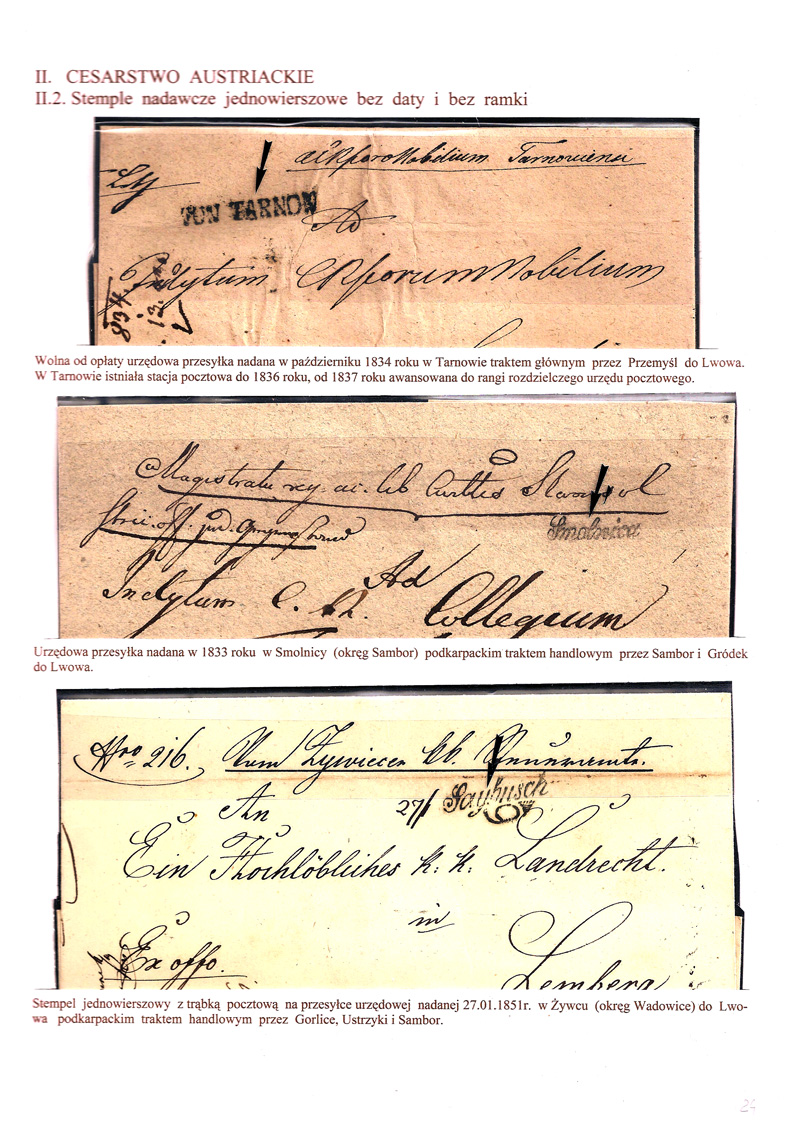 II. CESARSTWO AUSTRIACKIE
II.2. Stemple nadawcze jednowierszowe bez daty i bez ramki
VON TARNOW
Ad
Inclytum CR forum Nobilium
834
13
Wolna od opłaty urzędowa przesyłka nadana w październiku 1834 roku w Tarnowie traktem głównym przez Przemyśl do Lwowa.
W Tarnowie istniała stacja pocztowa do 1836 roku, od 1837 roku awansowana do rangi rozdzielczego urzędu pocztowego.
a Magistratu
Smolnica
Ad
Inclytum C. R. Collegium
Urzędowa przesyłka nadana w 1833 roku w Smolnicy (okręg Sambor) podkarpackim traktem handlowym przez Sambor i Gródek
do Lwowa.
Nro 216. Vom Zywiecer kk.
An 27/1 Saybusch
Ein Hochlöbliches k: k: Landrecht.
in
Ex offo.
Lemberg
Stempel jednowierszowy z trąbką pocztową na przesyłce urzędowej nadanej 27.01.1851r. w Żywcu (okręg Wadowice) do Lwo-
wa podkarpackim traktem handlowym przez Gorlice, Ustrzyki i Sambor.